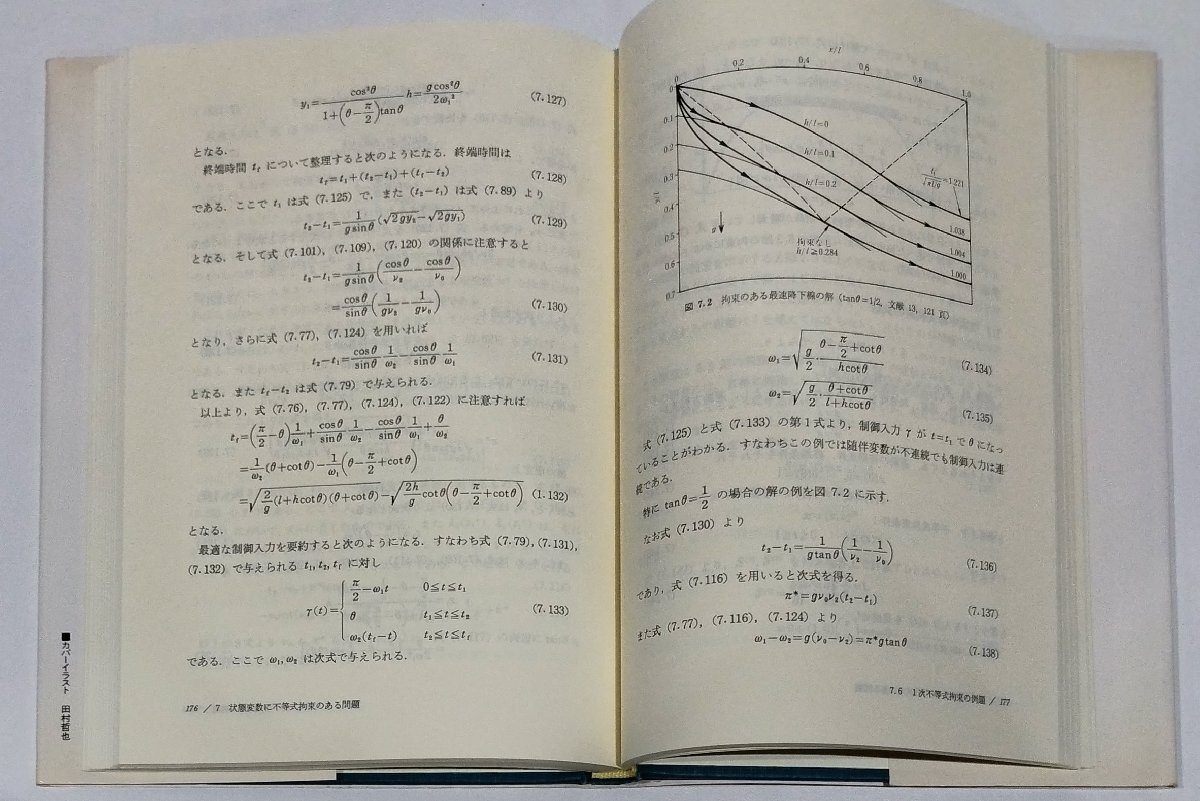 y₁=cos³θ/(1+(θ−π/2)tanθ) h=g cos²θ/2ω₁² (7.127)
となる.
終端時間 t_f について整理すると次のようになる. 終端時間は
t_f=t₁+(t₂−t₁)+(t_f−t₂) (7.128)
である. ここで t₁ は式 (7.125) で, また (t₂−t₁) は式 (7.89) より
t₂−t₁=1/(g sinθ)(√2gy₂−√2gy₁) (7.129)
となる. そして式 (7.101), (7.109), (7.120) の関係に注意すると
t₂−t₁=1/(g sinθ)(cosθ/ν₂−cosθ/ν₀)
=cosθ/sinθ(1/gν₂−1/gν₀) (7.130)
となり, さらに式 (7.77), (7.124) を用いれば
t₂−t₁=cosθ/sinθ 1/ω₂−cosθ/sinθ 1/ω₁ (7.131)
となる. また t_f−t₂ は式 (7.79) で与えられる.
以上より, 式 (7.76), (7.77), (7.124), (7.122) に注意すれば
t_f=(π/2−θ)1/ω₁+cosθ/sinθ 1/ω₂−cosθ/sinθ 1/ω₁+θ/ω₂
=1/ω₂(θ+cotθ)−1/ω₁(θ−π/2+cotθ)
=√(2/g(l+h cotθ)(θ+cotθ))−√(2h/g cotθ(θ−π/2+cotθ)) (1.132)
となる.
最適な制御入力を要約すると次のようになる. すなわち式 (7.79), (7.131),
(7.132) で与えられる t₁, t₂, t_f に対し
γ(t)={π/2−ω₁t 0≦t≦t₁
θ t₁≦t≦t₂ (7.133)
ω₂(t_f−t) t₂≦t≦t_f
である. ここで ω₁, ω₂ は次式で与えられる.
176 / 7 状態変数に不等式拘束のある問題
■カバーイラスト 田村哲也
x/l
0 0.2 0.4 0.6 0.8 1.0
0
0.1
0.2
0.3
0.4
0.5
0.6
0.7
h/l=0
h/l=0.1
h/l=0.2
t_f/√πl/g=1.221
1.038
1.004
1.000
g
拘束なし
h/l≧0.284
図 7.2 拘束のある最速降下線の解 (tanθ=1/2, 文献 13, 121 頁)
ω₁=√(g/2・(θ−π/2+cotθ)/(h cotθ)) (7.134)
ω₂=√(g/2・(θ+cotθ)/(l+h cotθ)) (7.135)
式 (7.125) と式 (7.133) の第 1 式より, 制御入力 γ が t=t₁ で θ になっ
ていることがわかる. すなわちこの例では随伴変数が不連続でも制御入力は連
続である.
特に tanθ=1/2 の場合の解の例を図 7.2 に示す.
なお式 (7.130) より
t₂−t₁=1/(g tanθ)(1/ν₂−1/ν₀) (7.136)
であり, 式 (7.116) を用いると次式を得る.
π*=gν₀ν₂(t₂−t₁) (7.137)
また式 (7.77), (7.116), (7.124) より
ω₁−ω₂=g(ν₀−ν₂)=π*g tanθ (7.138)
7.6 1次不等式拘束の例題 / 177